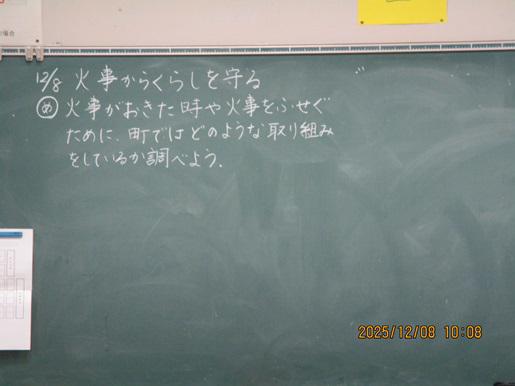 12/8 火事からくらしを守る
め 火事がおきた時や火事をふせぐ
ために、町ではどのような取り組み
をしているか調べよう。
2025/12/08 10:08